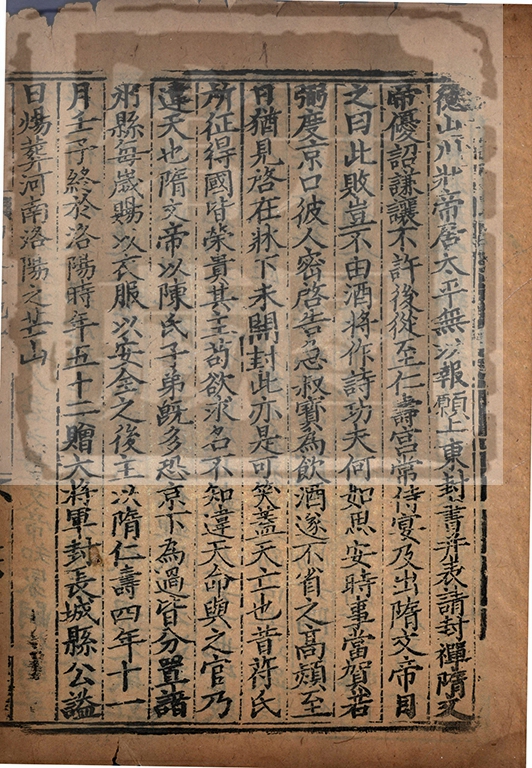 德山川壯帝居太平無以報願上東封書并表請封禪隋文
帝優詔謙讓不許後從至仁壽宮常侍宴及出隋文帝目
之曰此敗豈不由酒將作詩功夫何如思安時事當賀若
弼度京口彼人密啓告急叔寶為飲酒遂不省之高熲至
日猶見啓在牀下未開封此亦是可笑蓋天亡也昔苻氏
所征得國皆榮貴其主苟欲求名不知違天命與之官乃
違天也隋文帝以陳氏子弟旣多恐京下為過皆分置諸
州縣每歲賜以衣服以安全之後主以隋仁壽四年十一
月壬子終於洛陽時年五十二贈大將軍封長城縣公謚
曰煬葬河南洛陽之芒山